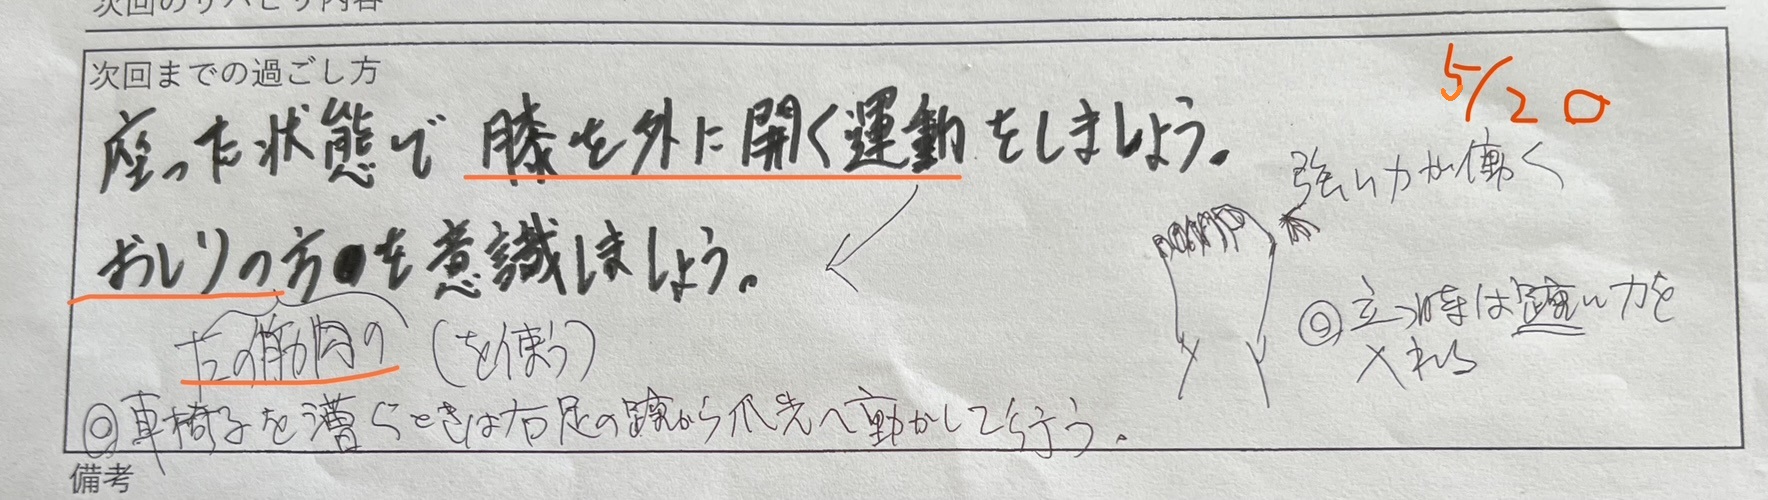 次回のリハビリ内容
次回までの過ごし方
5/20
座った状態で 膝を外に開く運動をしましょう。
強い力が働く
おしりの方を意識しましょう。
左の筋肉の (を使う)
◎立つ時は踵に力を
入れる
◎車椅子を漕ぐときは右足の踵から爪先へ動かして行う。
備考